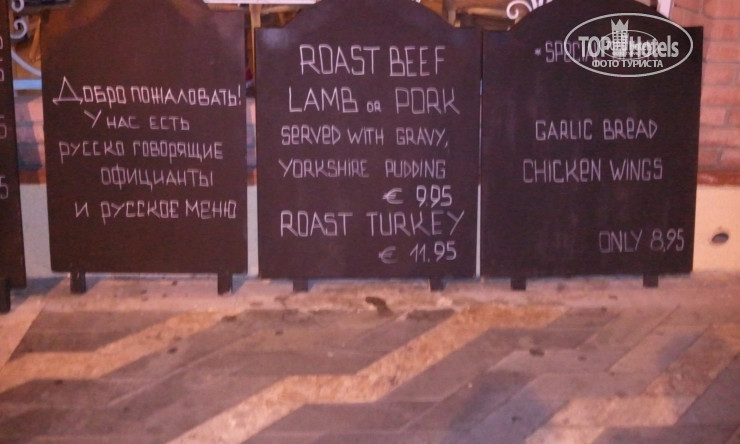 Добро пожаловать!
У нас есть
русско говорящие
официанты
и русское меню
ROAST BEEF
LAMB OR PORK
SERVED WITH GRAVY,
YORKSHIRE PUDDING
€ 9,95
ROAST TURKEY
€ 11.95
GARLIC BREAD
CHICKEN WINGS
ONLY 8,95
TOPHotels
ФОТО ТУРИСТА